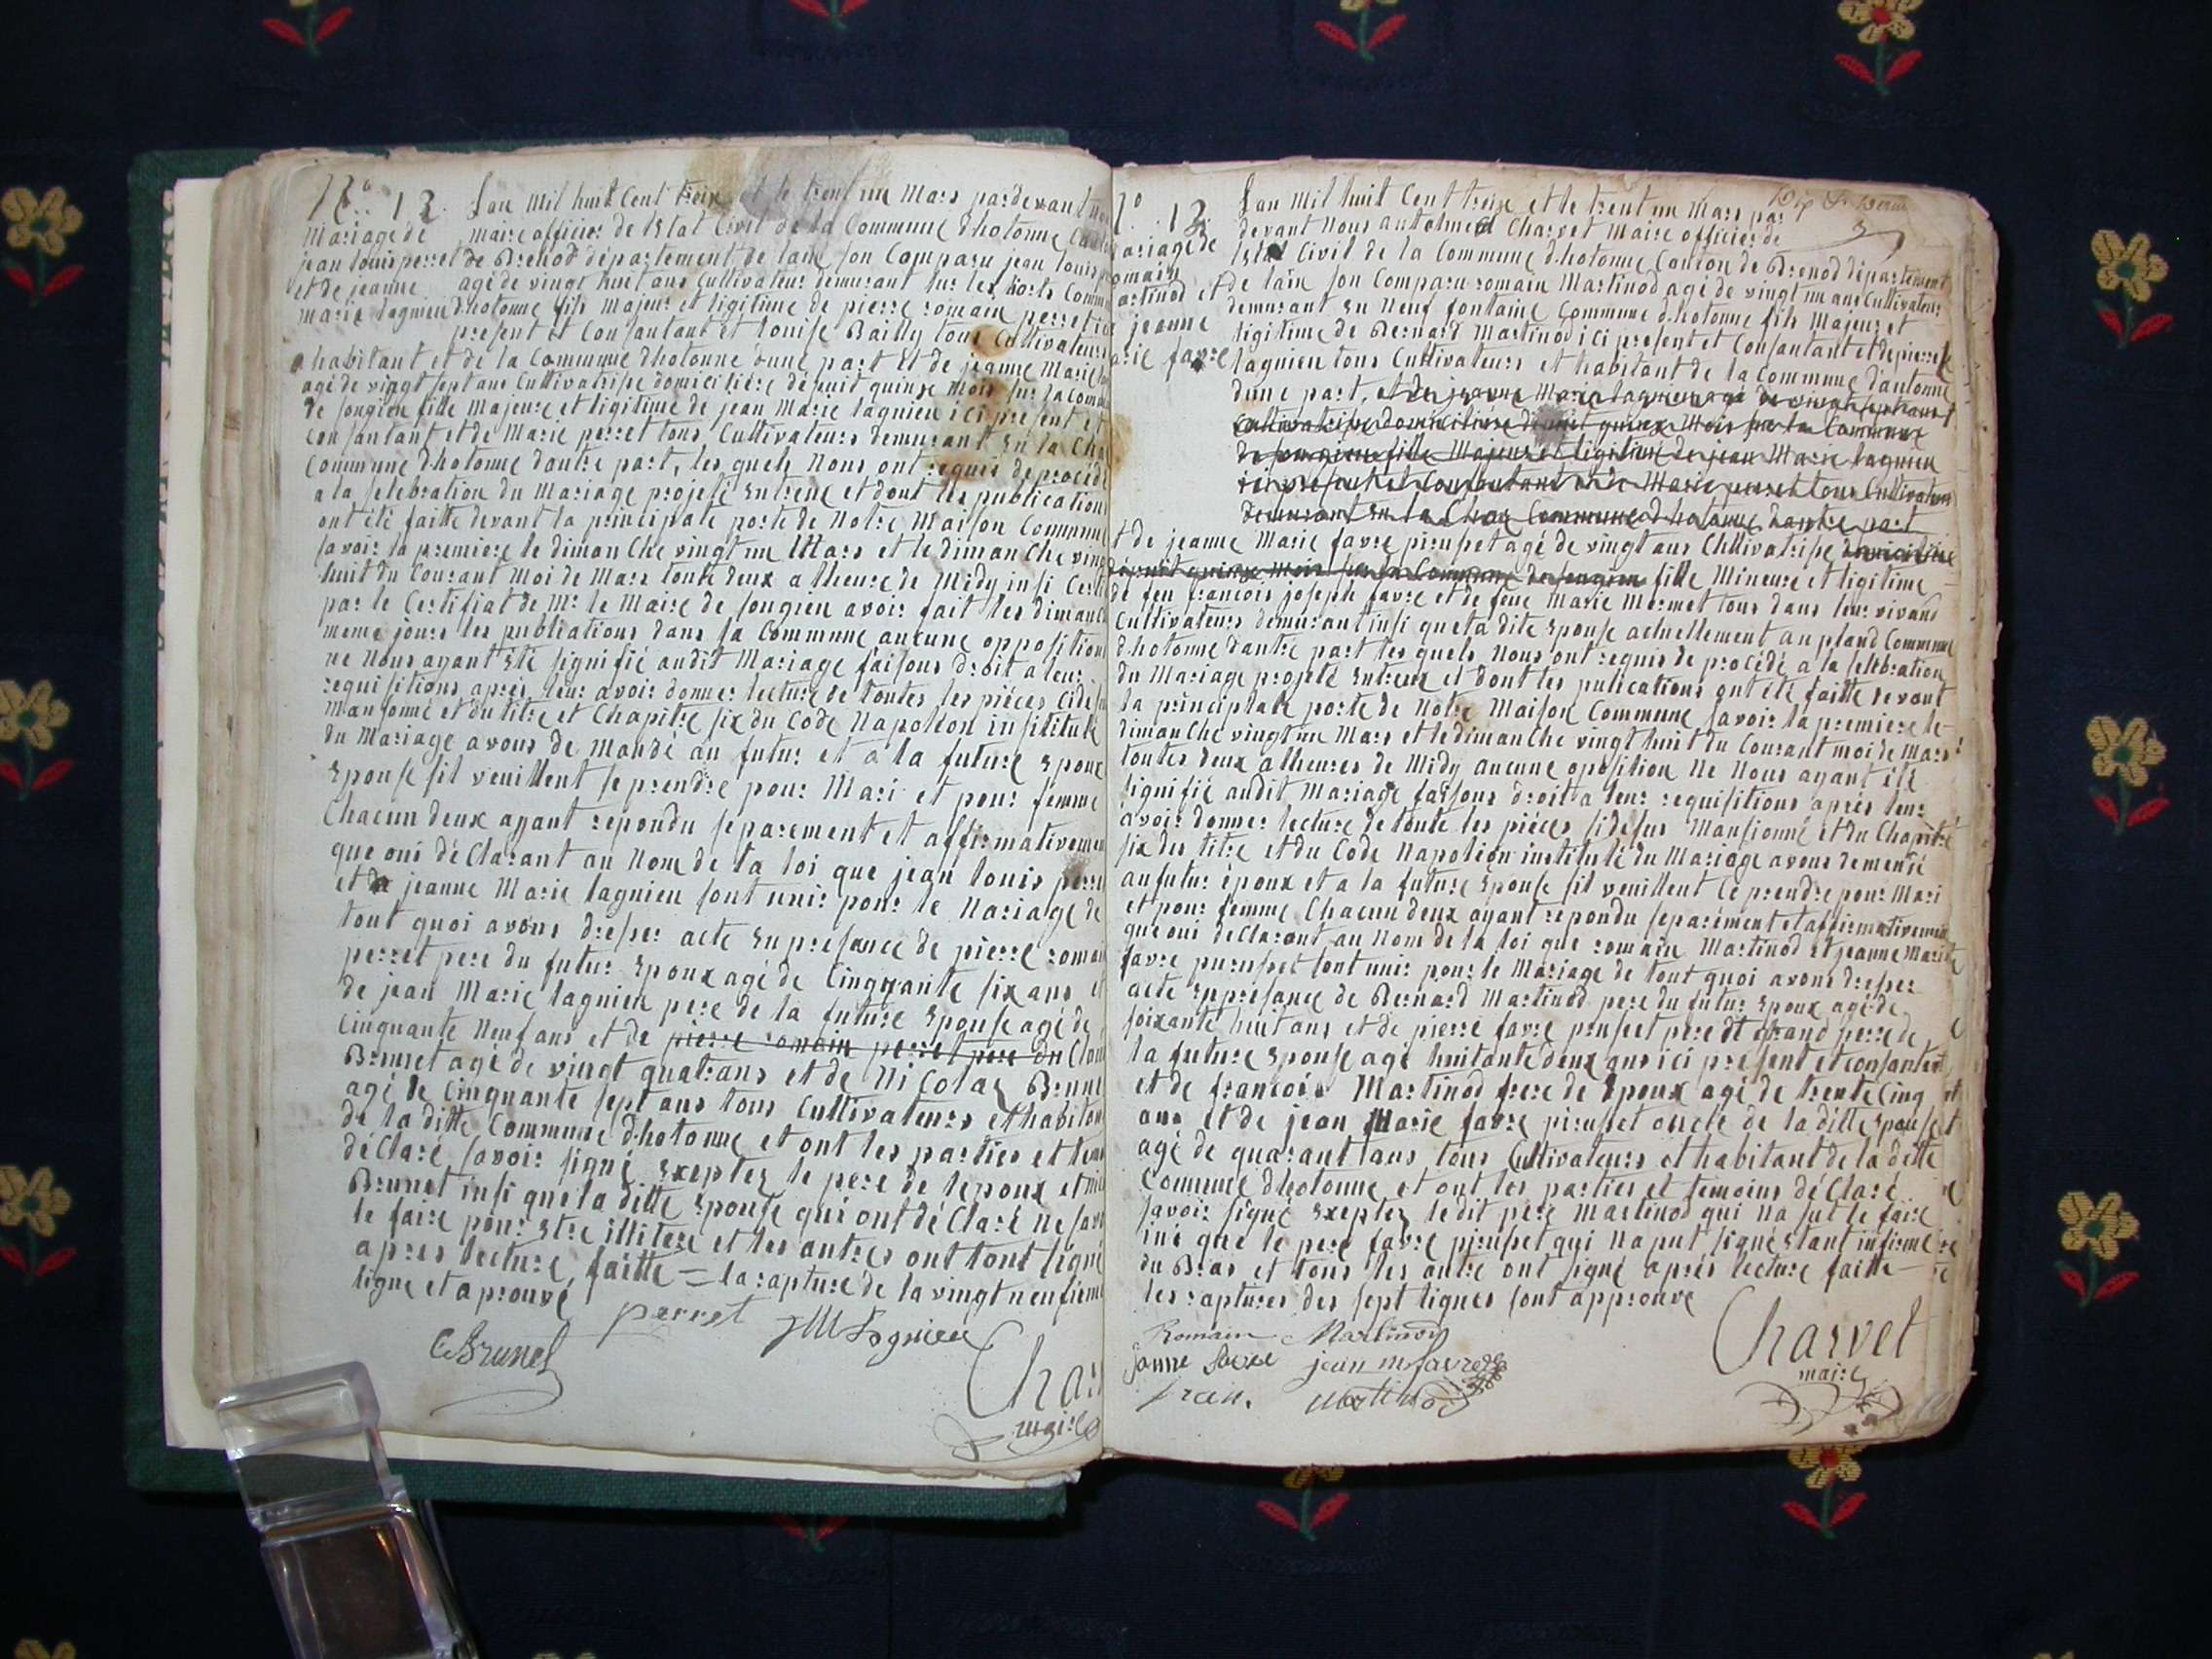 N° 12.
Mariage de
jean louis perret
et de jeanne
marie lagnieu
Lan Mil huit Cent treize et le trent un Mars pardevant
maire officier de lEtat Civil de la Commune dhotonne
de Brenod département de lain son Comparu jean louis
agé de vingt huit ans Cultivateur demurant sur les horts
dhotonne fils majeur et ligitime de pierre romain perret ici
present et Consantant et louise Bailly tous Cultivateurs
habitant et de la Commune dhotonne dune part Et de jeanne Marie
agé de vingt sept ans Cultivatrise domiciliére dépuit quinze Mois sur la
de songieu fille Majeure et ligitime de jean Marie lagnieu ici present et
Consantant et de Marie perret tous Cultivateurs demurant En la
Commune dhotonne dautre part, les quels Nous ont requis de procédé
a la selebration du Mariage projeté Entreux et dont les publications
ont été faitte devant la principale porte de Notre Maison Commune
savoir la premiere le dimanche vingt un Mars et le dimanche vingt
huit du Courant Moi de Mars toute deux a lheure de Midy insi
par le Certifiat de Mr le Maire de songieu avoir fait les
meme jours les publiations dans sa Commune aucune opposition
ne Nous ayant Eté signifié audit Mariage faisons droit a leur
requisitions après leur avoir donner lecture de toutes les piéces
mansonné et du titre et Chapitre six du Code Napoléon institulé
du Mariage avons de mandé au futur et a la future
Epouse sil veuillent se prendre pour Mari et pour femme
Chacun deux ayant repondu separement et affirmativement
que oui déClarant au Nom de la loi que jean louis
et de jeanne Marie lagnieu sont unir pour le Mariage de
tout quoi avons dresser acte En presance de pierre romain
perret pere du futur Epoux agé de Cinquante six ans et
de jean Marie lagnieu pere de la future Epouse agé de
Cinquante Neuf ans et de pierre romain perret pere du
Brunet agé de vingt quatrans et de NiColas
agé de Cinquante sept ans tous Cultivateurs et habitant
de la ditte Commune dhotonne et ont les parties et
déClaré savoir signé Exepter le pere de lepoux et
Brunet insi que la ditte Epouse qui ont déClaré ne
le faire pour Etre illitere et les autres ont tout signé
apres lecture faitte = la rapture de la vingt neufieme
ligne et aprouvé
perret
JM Lagnieu
C Brunet
maire
12.
mariage de
omain
artinod et
jeanne
arie favre
Lan Mil huit Cent treize et le trent un Mars par
devant Nous Charvet Maire officier de
lEtat Civil de la Commune dhotonne Canton de Brenod département
de lain son Comparu romain Martinod agé de vingt un ans Cultivateur
demurant En Neuf fontaine Commune dhotonne fils Majeur et
ligitime de Bernard Martinod ici present et Consantant et de pierrette
lagnieu tous Cultivateurs et habitant de la Commune
dune part, et de jeanne Marie lagnieu agé de vingt sept ans
Cultivatrise domiciliére dépuit quinze Mois sur la Commune
de songieu fille Majeure et ligitime de jean Marie lagnieu
ici present et Consantant et de Marie perret tous Cultivateurs
demurant En la Commune dhotonne dautre part
Et de jeanne Marie favre agé de vingt ans Cultivatrise domiciliére
dépuit quinze Mois sur la Commune de songieu fille Mineure et ligitime
de feu francois joseph favre et de feue Marie Mermet tous dans leur vivand
Cultivateurs demurant insi que la dite Epouse actuellement au pland Commune
dhotonne dautre part les quels Nous ont requis de procédé a la selebration
du Mariage projeté Entreux et dont les pulications ont été faitte devant
la principale porte de Notre Maison Commune savoir la premiere le
dimanche vingt un Mars et le dimanche vingt huit du Courant moi de Mars
toutes deux a lheures de Midy aucune oposition Ne Nous ayant été
signifié audit Mariage faisons droit a leur requisitions aprés leur
avoir donner lecture de toute les piéces sidesus Mansionné et du Chapitre
six des titre et du Code Napoléon institulé du Mariage avons demendé
au futur époux et a la future Epouse sil veuillent Ce prendre pour Mari
et pour femme Chacun deux ayant repondu separément et affirmativement
que oui declarant au Nom de la loi que romain Martinod et jeanne Marie
favre sont unir pour le Mariage de tout quoi avons dresser
acte En presance de Bernard Martinod pere du futur Epoux agé de
soixante huit ans et de pierre favre pere et grand perre de
la future Epouse agé huitante deux ans ici present et consantent
et de francois Martinod frere de Epoux agé de trente Cinq
ans et de jean Marie favre oncle de la ditte Epouse
agé de quarant ans tous Cultivateurs et habitant de la ditte
Commune dhotonne et ont les parties et temoins déClaré
savoir signé Exepter ledit pere Martinod qui Na sut le faire
insi que le pere favre qui Na put signé Etant infirme
du Bras et tous les autre ont signé aprés lecture faitte
les raptures des sept lignes sont approuvé
Romain Martinod
Janne favre jean m favre
fran. martinod
Charvet
maire